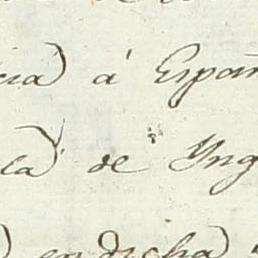 cia á Españ
la de Yng
en dicha